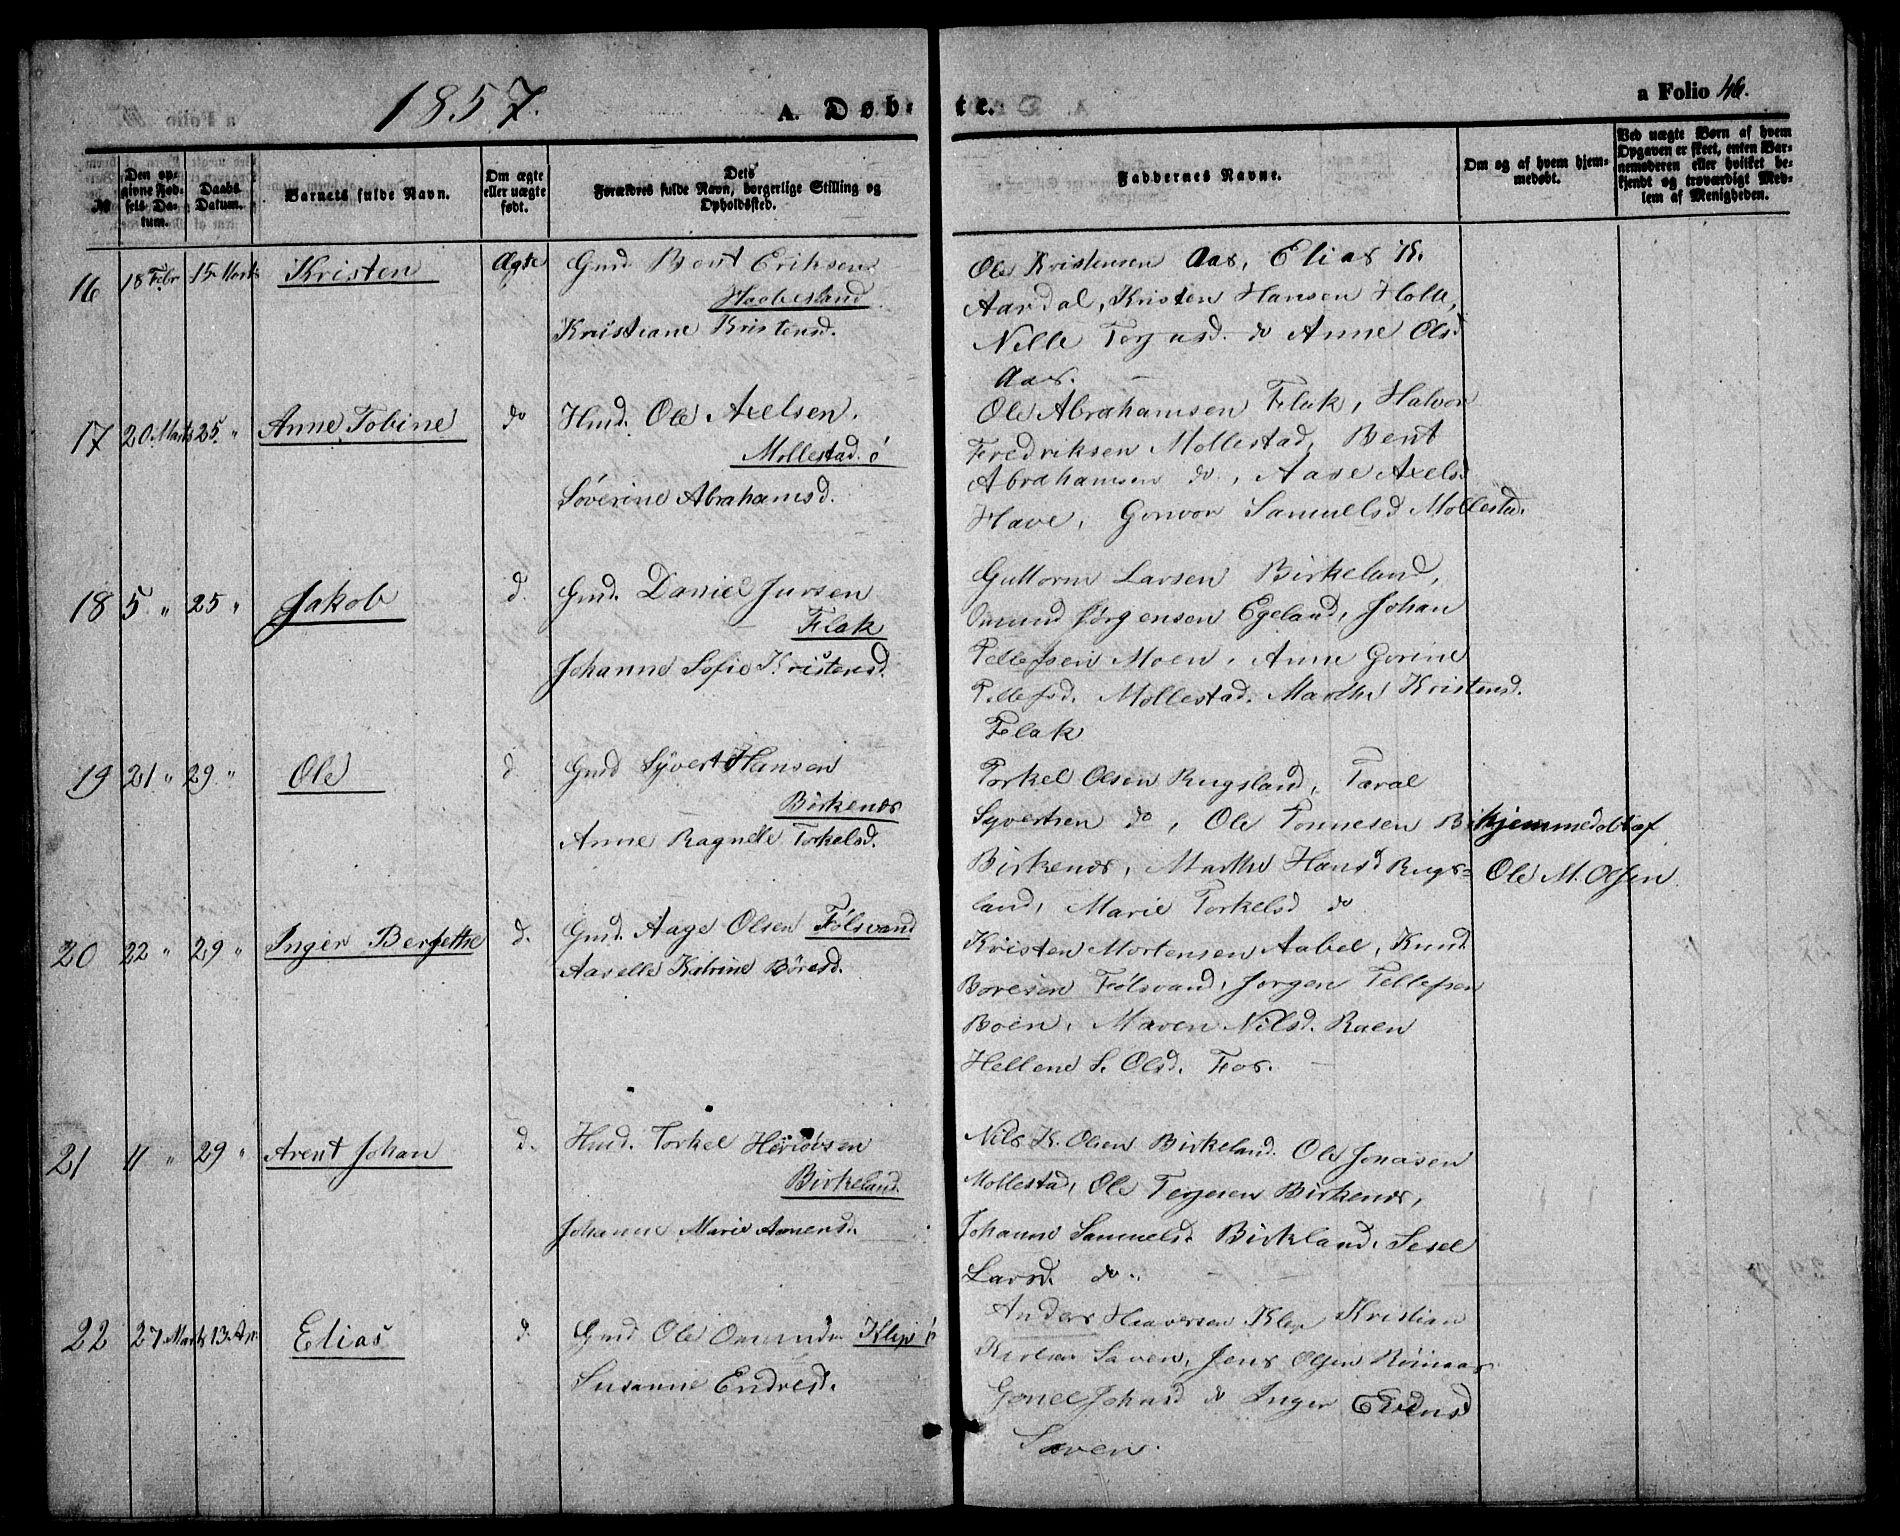 1857.
A. Døb-
te.
a Folio 46.
No
Den op-
givne Fød-
sels Da-
tum.
Daabs
Datum.
Barnets fulde Navn.
Om ægte
eller uægte
født.
Dets
Forældres fulde Navn, borgerlige Stilling og
Opholdssted.
Faddernes Navne.
Om og af hvem hjem-
medøbt.
Ved uægte Børn af hvem
Opgaven er skeet, enten Bar-
nemoderen eller hvilket be-
kjendt og troværdigt Med-
lem af Menigheden.
16 18 Febr 15 Marts Kristen Ægte Gmd Bent Eriksen
Haabesland
Kristiane Kristensd.
Ole Kristensen Aas, Elias K.
Aardal, Kristen Hansen Holte,
Nille Terjusd. do Anne Olsd
Aas.
17 20 Marts 25 " Anne Tobine do Hmd. Ole Axelsen.
Mollestad ö
Söverine Abrahamsd.
Ole Abrahamsen Flak, Halvor
Fredriksen Mollestad, Bent
Abrahamsen do, Aase Axelsd
Have, Gonvor Samuelsd Mollestad.
18 5 " 25 " Jakob d. Gmd. Daniel Jursen
Flak
Johanne Sofie Kristensd.
Guttorm Larsen Birkeland,
Omund Jörgensen Egeland, Johan
Tellefsen Moen, Anne Gorine
Tellefsd. Mollestad. Marthe Kristensd.
Flak
19 21 " 29 " Ole d Gmd Syvert Hansen
Birkenes
Anne Ragnille Torkelsd.
Torkel Olsen Rugsland, Taral
Syvertsen do, Ole Tonnesen
Birkenes, Marthe Hansd Rugs-
land, Marie Torkelsd do
Hjemmedöbt af
Ole M. Olsen
20 22 " 29 " Inger Bergethe d. Gmd. Aage Olsen Fölsvand
Aaselle Katrine Böresd.
Kristen Mortensen Aabel, Knud
Boresen Fölsvand, Jorgen Tellefsen
Boen, Maren Nilsd. Raen
Hellene S. Olsd. Fos.
21 11 " 29 " Arent Johan d. Hmd. Torkel
Birkeland
Johanne Marie
Nils K. Olsen Birkeland. Ole Jonasen
Mollestad, Ole Terjesen Birkenes,
Johanne Samuelsd. Birkland, Sesel
Larsd. do.
22 27 Marts 13 Ap. Elias d. Gmd Ole Omunds. Klep ö
Susanne Endresd.
Anders Haaversen Klep Kristian
Saven, Jens Olsen
Gonel Johnsd do Inger Evensd
Saven.